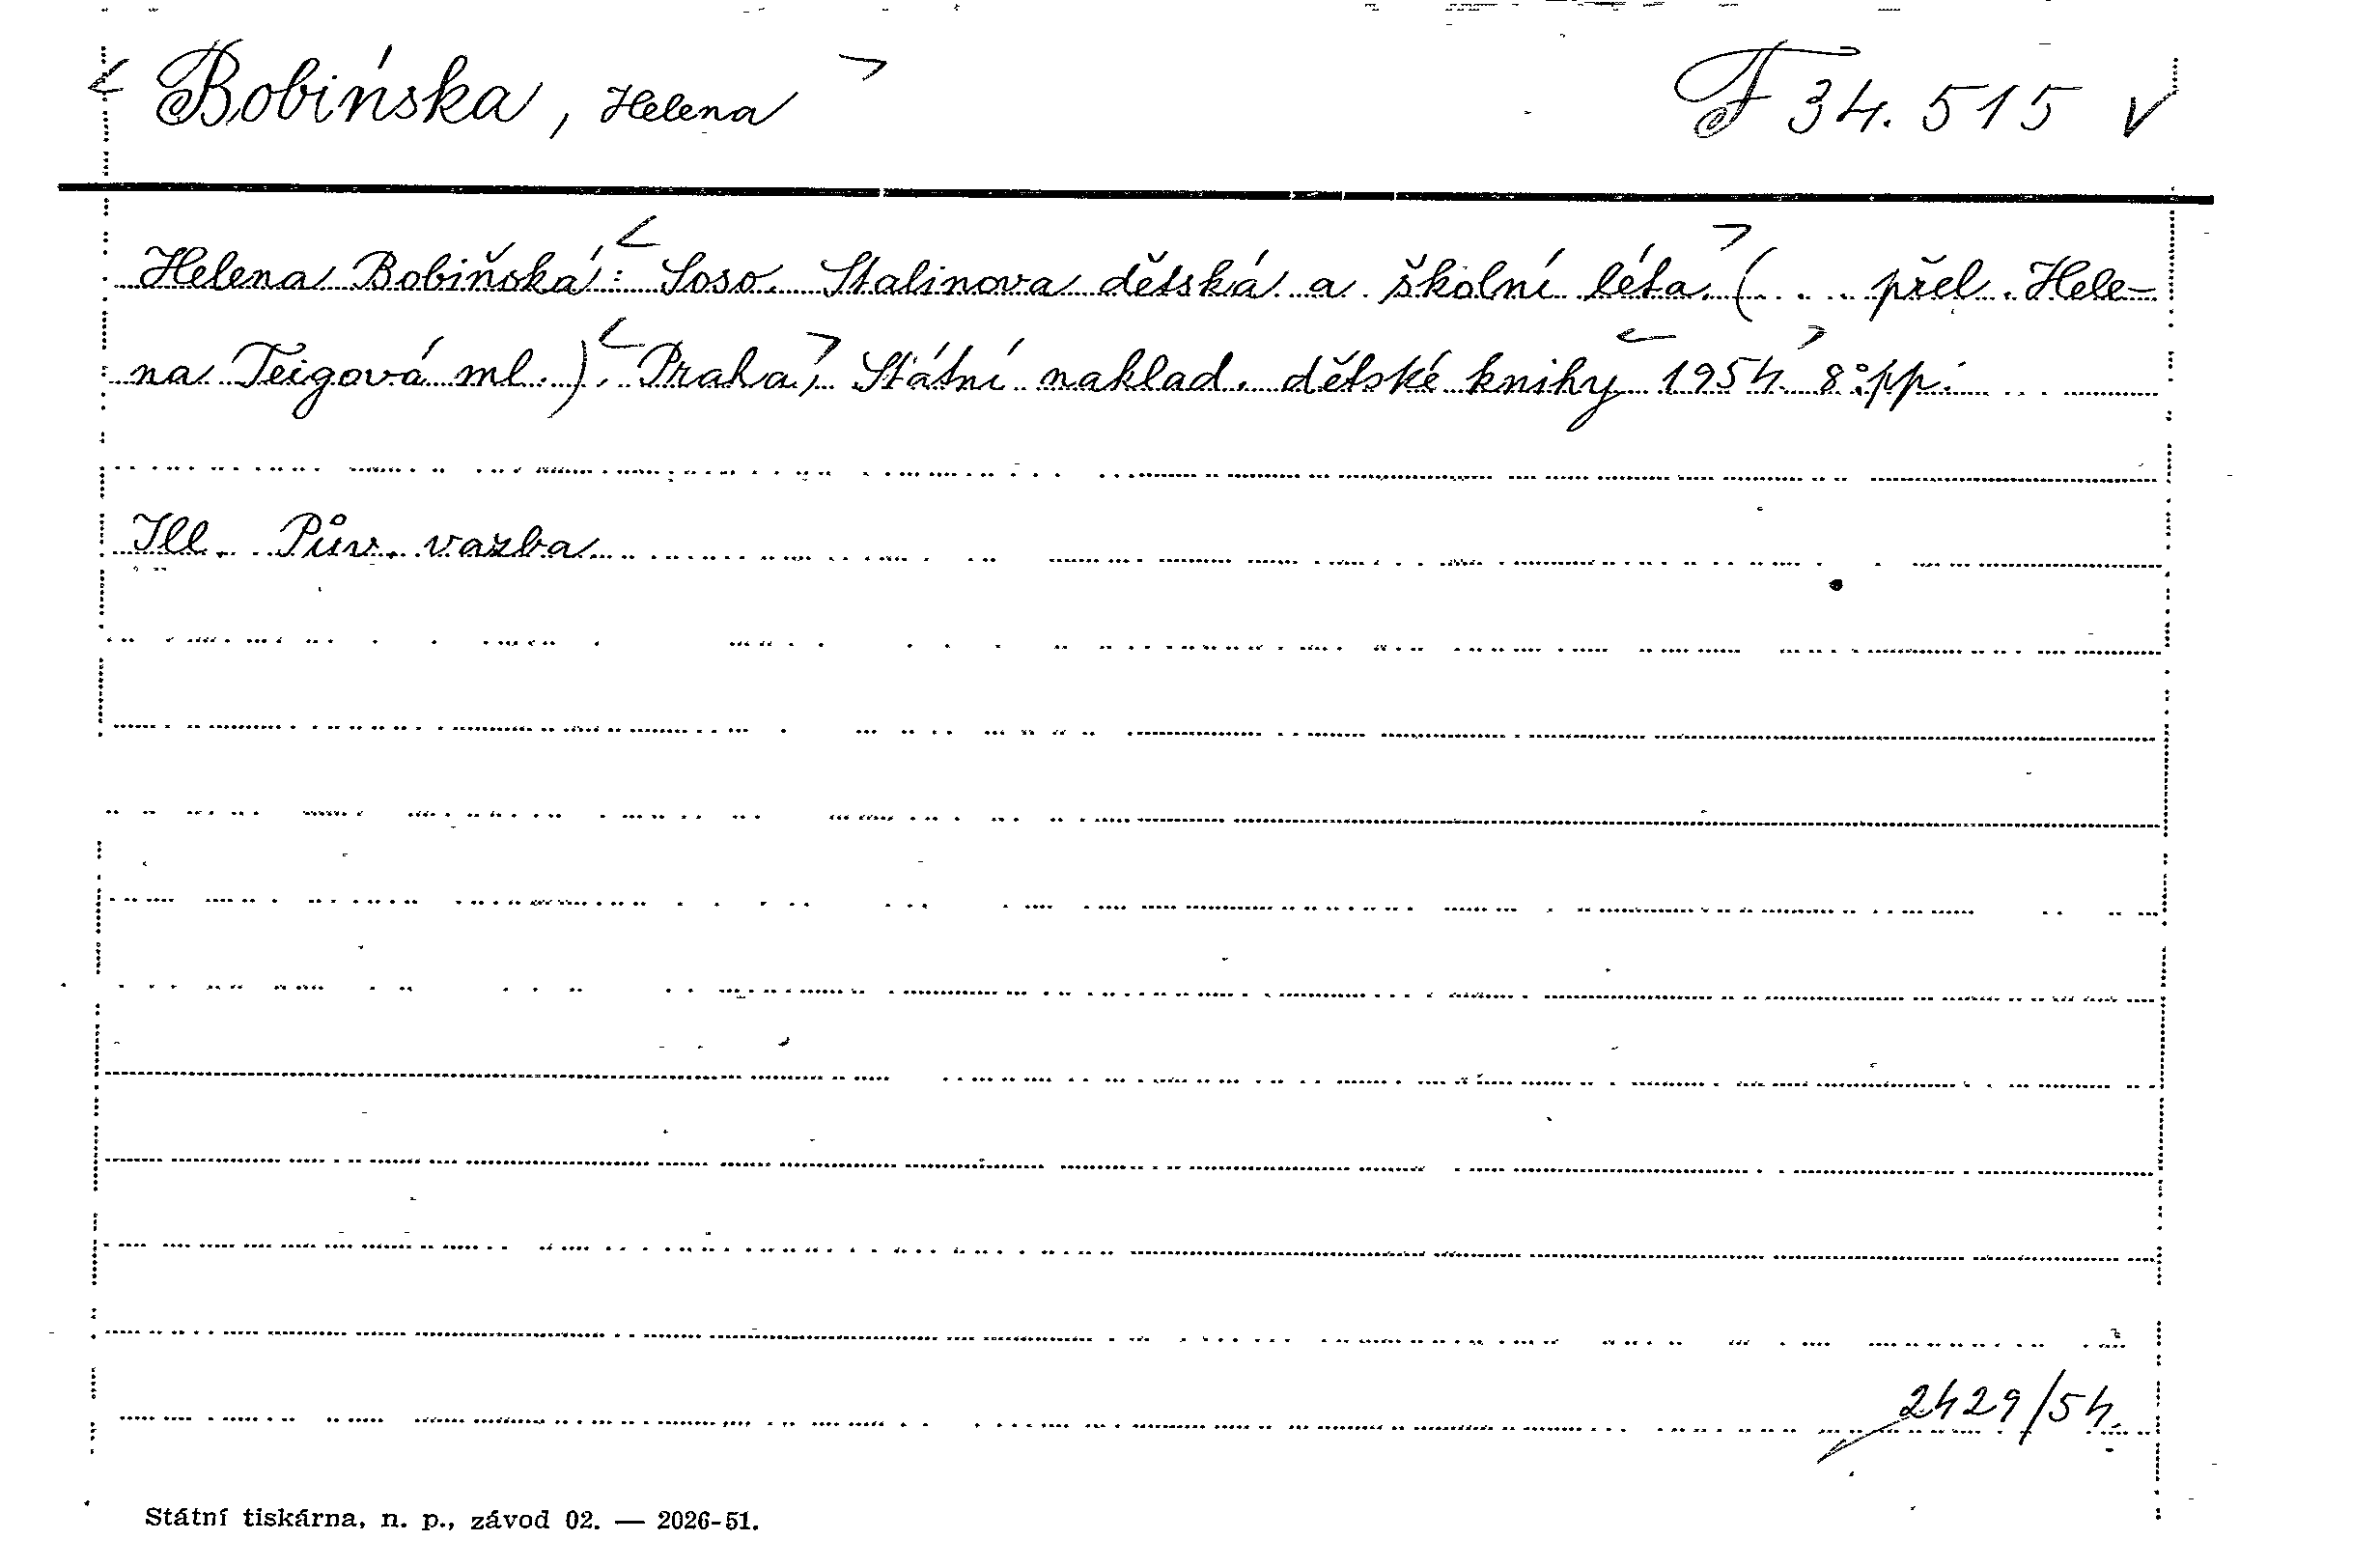 < Bobińska, Helena > F 34.515 v
Helena Bobiňská: < Soso. Stalinova dětská a školní léta. > ( . . . přel. Hele-
na Teigová ml.). < Praha, > Státní naklad. dětské knihy < 1954 > 8:° pp.
Ill. Pův. vazba
2429/54.
Státní tiskárna, n. p., závod 02. — 2026-51.